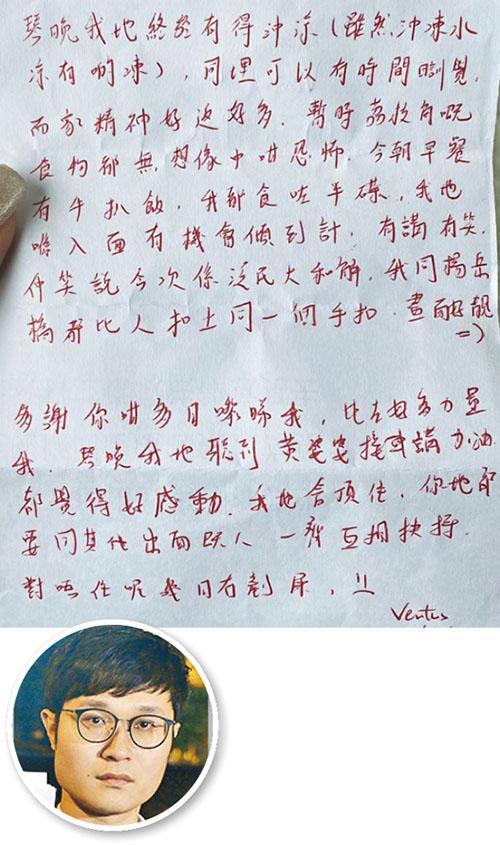 琴晚我地終於有得沖涼(雖然沖凍水
涼有啲凍),同埋可以有時間瞓覺,
而家精神好返好多.暫時荔枝角嘅
食物都無想像中咁恐怖.今朝早餐
有牛扒飯,我都食咗半碟,我地
喺入面有機會傾到計,有講有笑,
仲笑說今次係泛民大和解.我同楊岳
橋都比人扣上同一個手扣.盡配靚
=)
多謝你咁多日嚟睇我,比左好多力量
我.琴晚我地聽到黃婆婆揸車講加油
都覺得好感動.我地會頂住,你地都
要同其他出面既人一齊互相扶持.
對唔住呢幾日冇剃尿,
Ventus